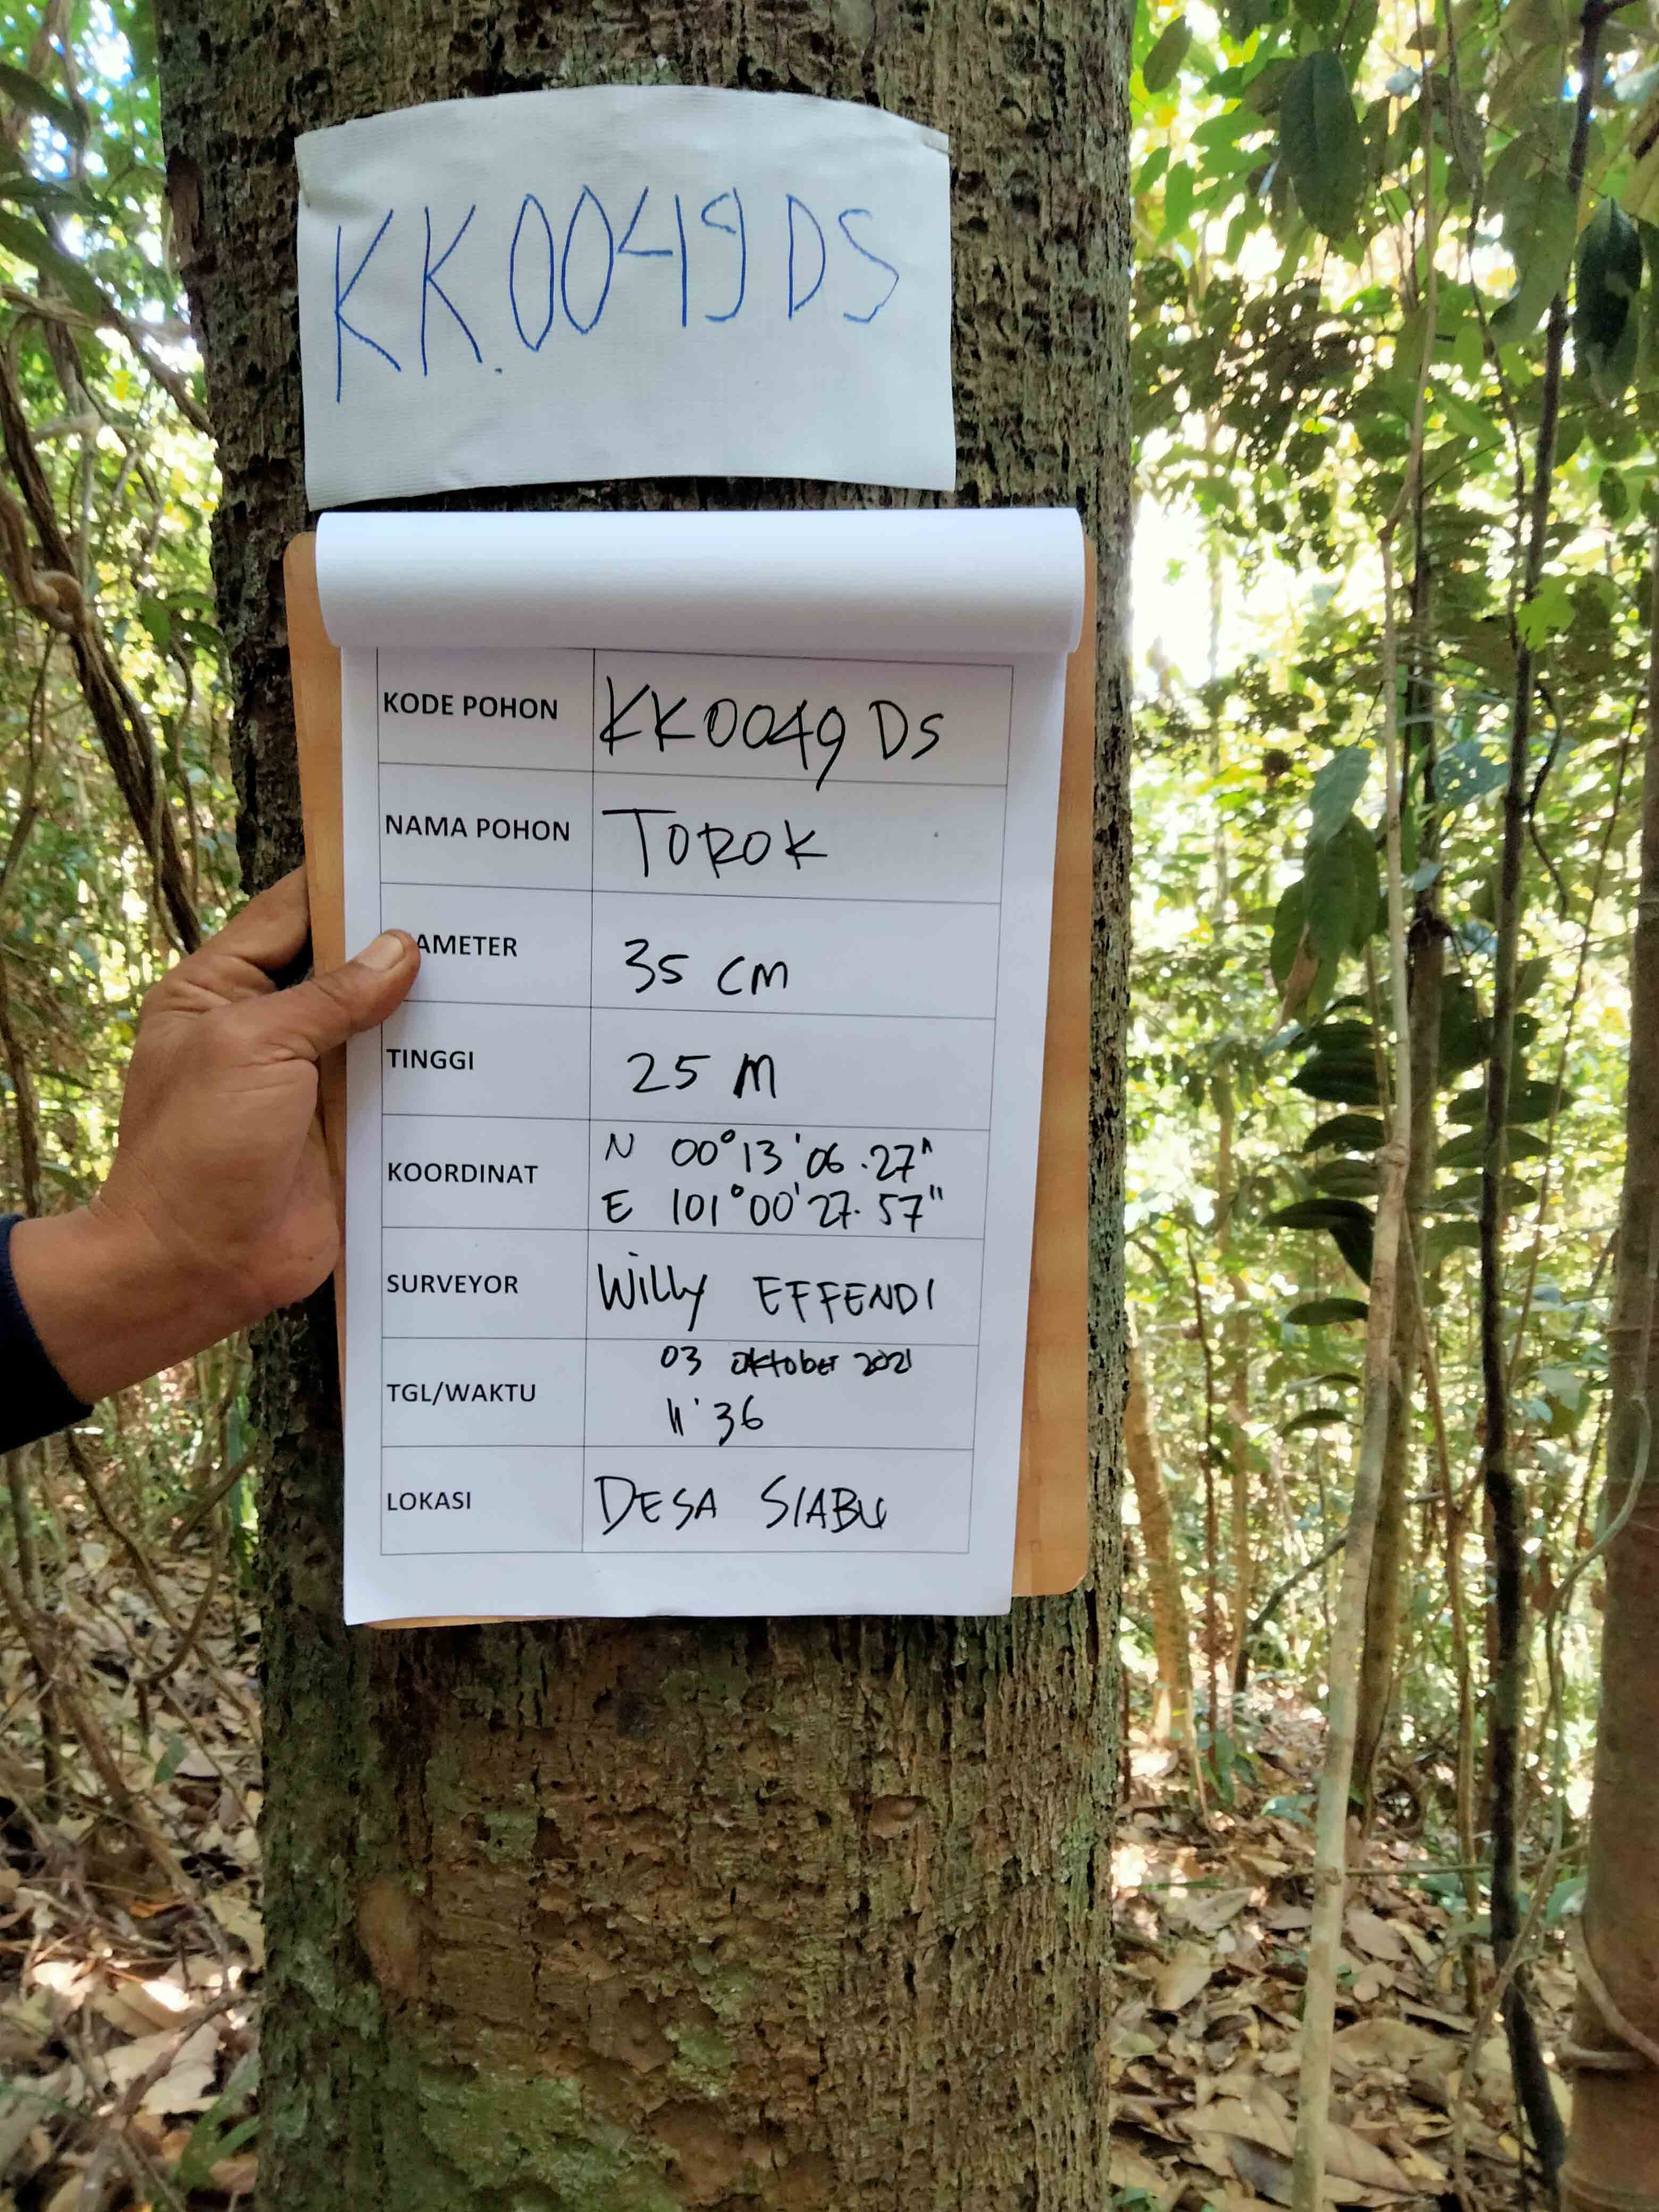 KK.0049 DS
KODE POHON KK0049 DS
NAMA POHON TOROK
AMETER 35 CM
TINGGI 25 M
KOORDINAT N 00°13'06.27"
E 101°00'27.57"
SURVEYOR Willy EFFENDI
TGL/WAKTU 03 Oktober 2021
11'36
LOKASI DESA SIABU